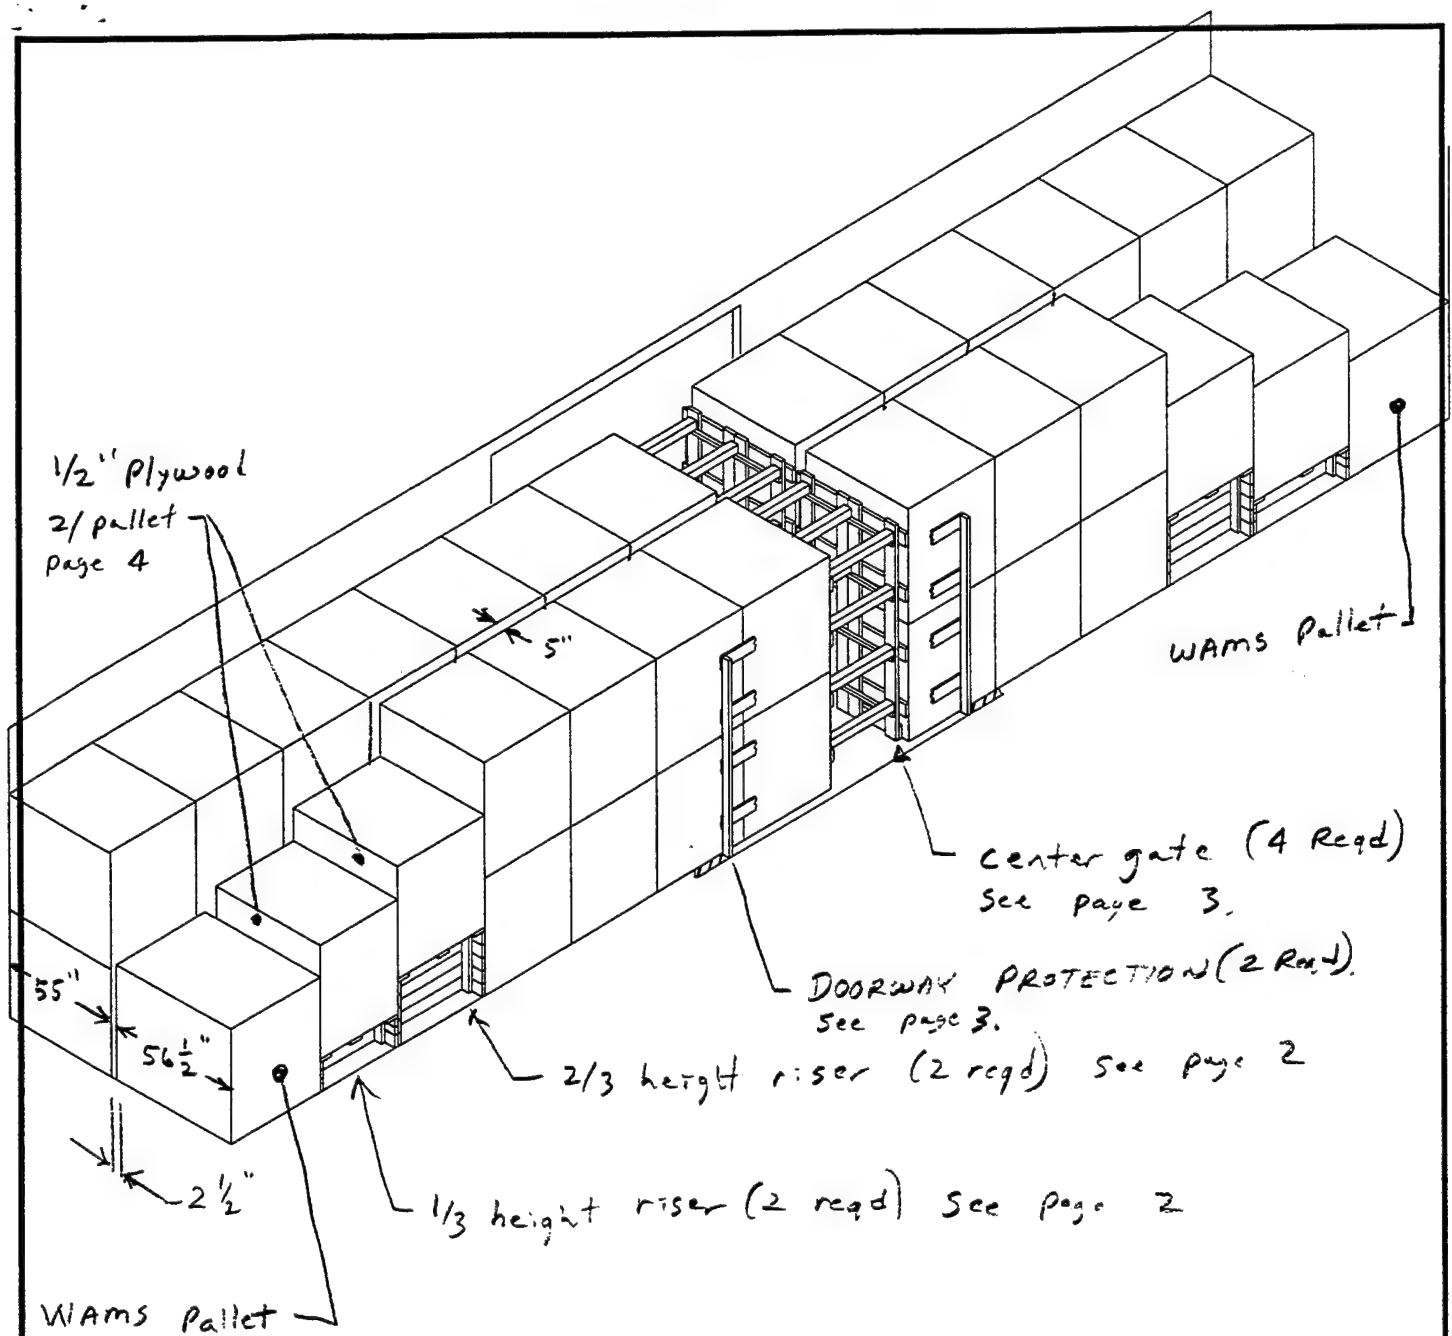 1/2" Plywood
2/pallet
page 4
5"
WAMS Pallet
center gate (4 Reqd)
see page 3.
DOORWAY PROTECTION (2 Reqd).
see page 3.
55"
56 1/2"
2/3 height riser (2 reqd) see page 2
2 1/2"
1/3 height riser (2 reqd) see page 2
WAMS Pallet